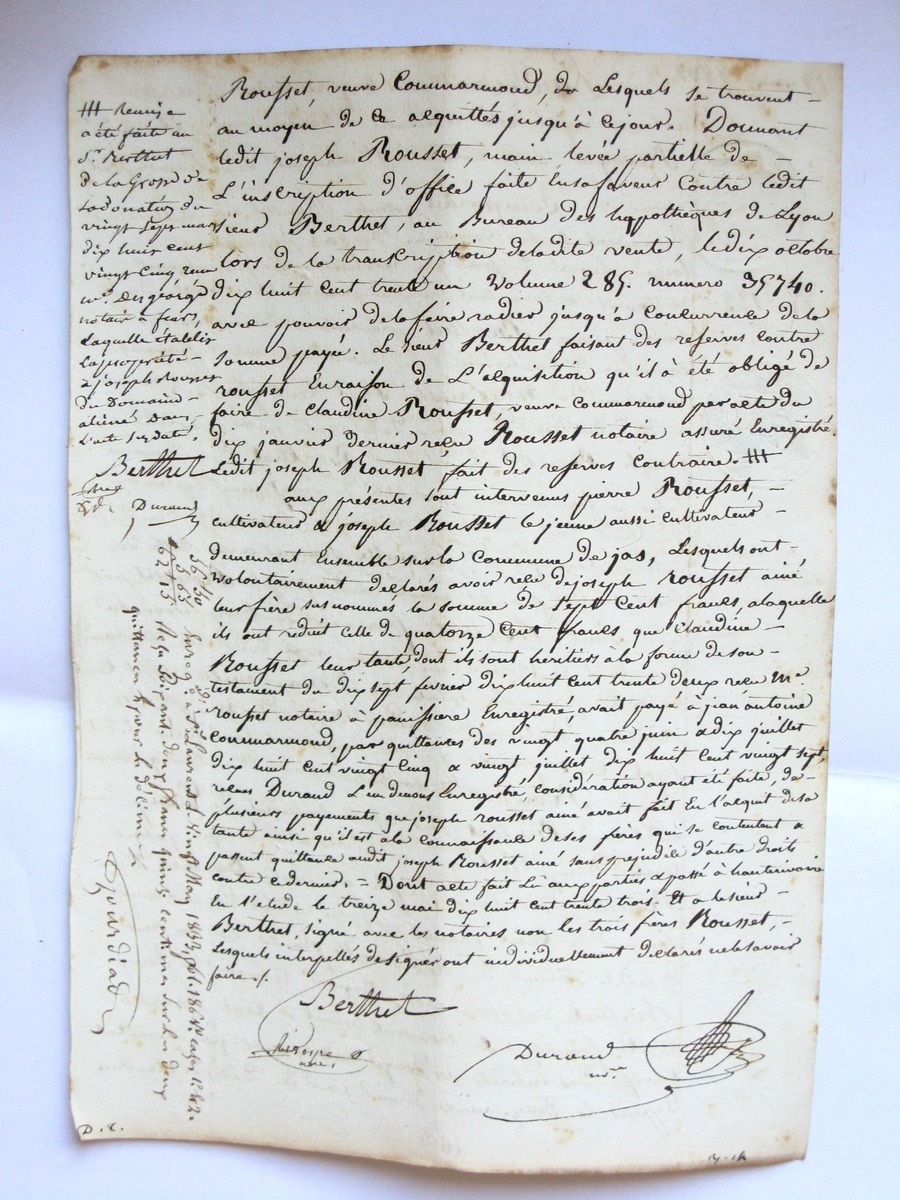 Rousset, veuve Commarmond, de lesquels se trouvent -
au moyen de ce acquittés jusqu'à ce jour. Donnant
ledit joseph Rousset, main levée partielle de -
L'inscription d'office faite en sa faveur contre ledit
sieur Berthet, au Bureau des hypothèques de Lyon
lors de la transcription de ladite vente, le dix octobre
dix huit cent trente un volume 285. numero 35740.
avec pouvoir de la faire radier jusqu'à concurrence de la
somme payée. Le sieur Berthet faisant des reserves contre
rousset en raison de L'acquisition qu'il à été obligé de
faire de Claudine Rousset, veuve Commarmond par acte du
dix janvier dernier reçu Rousset notaire assuré Enregistré.
Ledit joseph Rousset, fait des reserves contraire. ///
aux présentes sont intervenus pierre Rousset, -
cultivateur & joseph Rousset le jeune aussi cultivateur -
demeurant Ensemble sur la Commune de jas, Lesquels ont -
volontairement déclarés avoir reçu de joseph rousset ainé
leur frère susnommés la somme de sept cent francs, a laquelle
ils ont réduit celle de quatorze cent francs que Claudine -
Rousset leur tante, dont ils sont héritiers à la forme de son -
testament du dix sept fevrier dix huit cent trente deux reçu Me
rousset notaire à panissière Enregistré, avait payé à jean antoine
Commarmond, par quittances des vingt quatre juin & dix juillet
dix huit cent vingt cinq & vingt juillet dix huit cent vingt sept,
reçues Durand L'un de nous Enregistré, considération ayant été faite, de -
plusieurs payements que joseph rousset ainé avait fait En l'acquit de sa
tante ainsi qu'il est à la connaissance de ses frères qui se contentent &
passent quittance audit joseph Rousset ainé sans prejudice d'autre droits
contre ce dernier. = Dont acte fait Lu aux parties & passé à hauterivoire
En l'etude le treize mai dix huit cent trente trois. Et a le sieur -
Berthet, signé avec les notaires non les trois frères Rousset, -
Lesquels interpellés de signer ont individuellement déclarés ne le savoir
faire ./.
Berthet
Durand
nre
/// Remise
a été faite au
Sr. Berthet
de la Grosse de
La donation du
vingt sept mars
dix huit cent
vingt cinq reçu
me. Desgeorge
notaire à feurs,
Laquelle établis
La propriété -
à joseph rousset
du Domaine -
aliéné dans
L'acte susdaté.
Berthet
Durand
56 50
5 65
62 15
Enregé à St Laurent le vingt May 1833, fol. 186 Vo cases 1e & 2.
Reçu Soixante deux francs quinze centimes sur les deux
quittances & pour le décime
D. C.